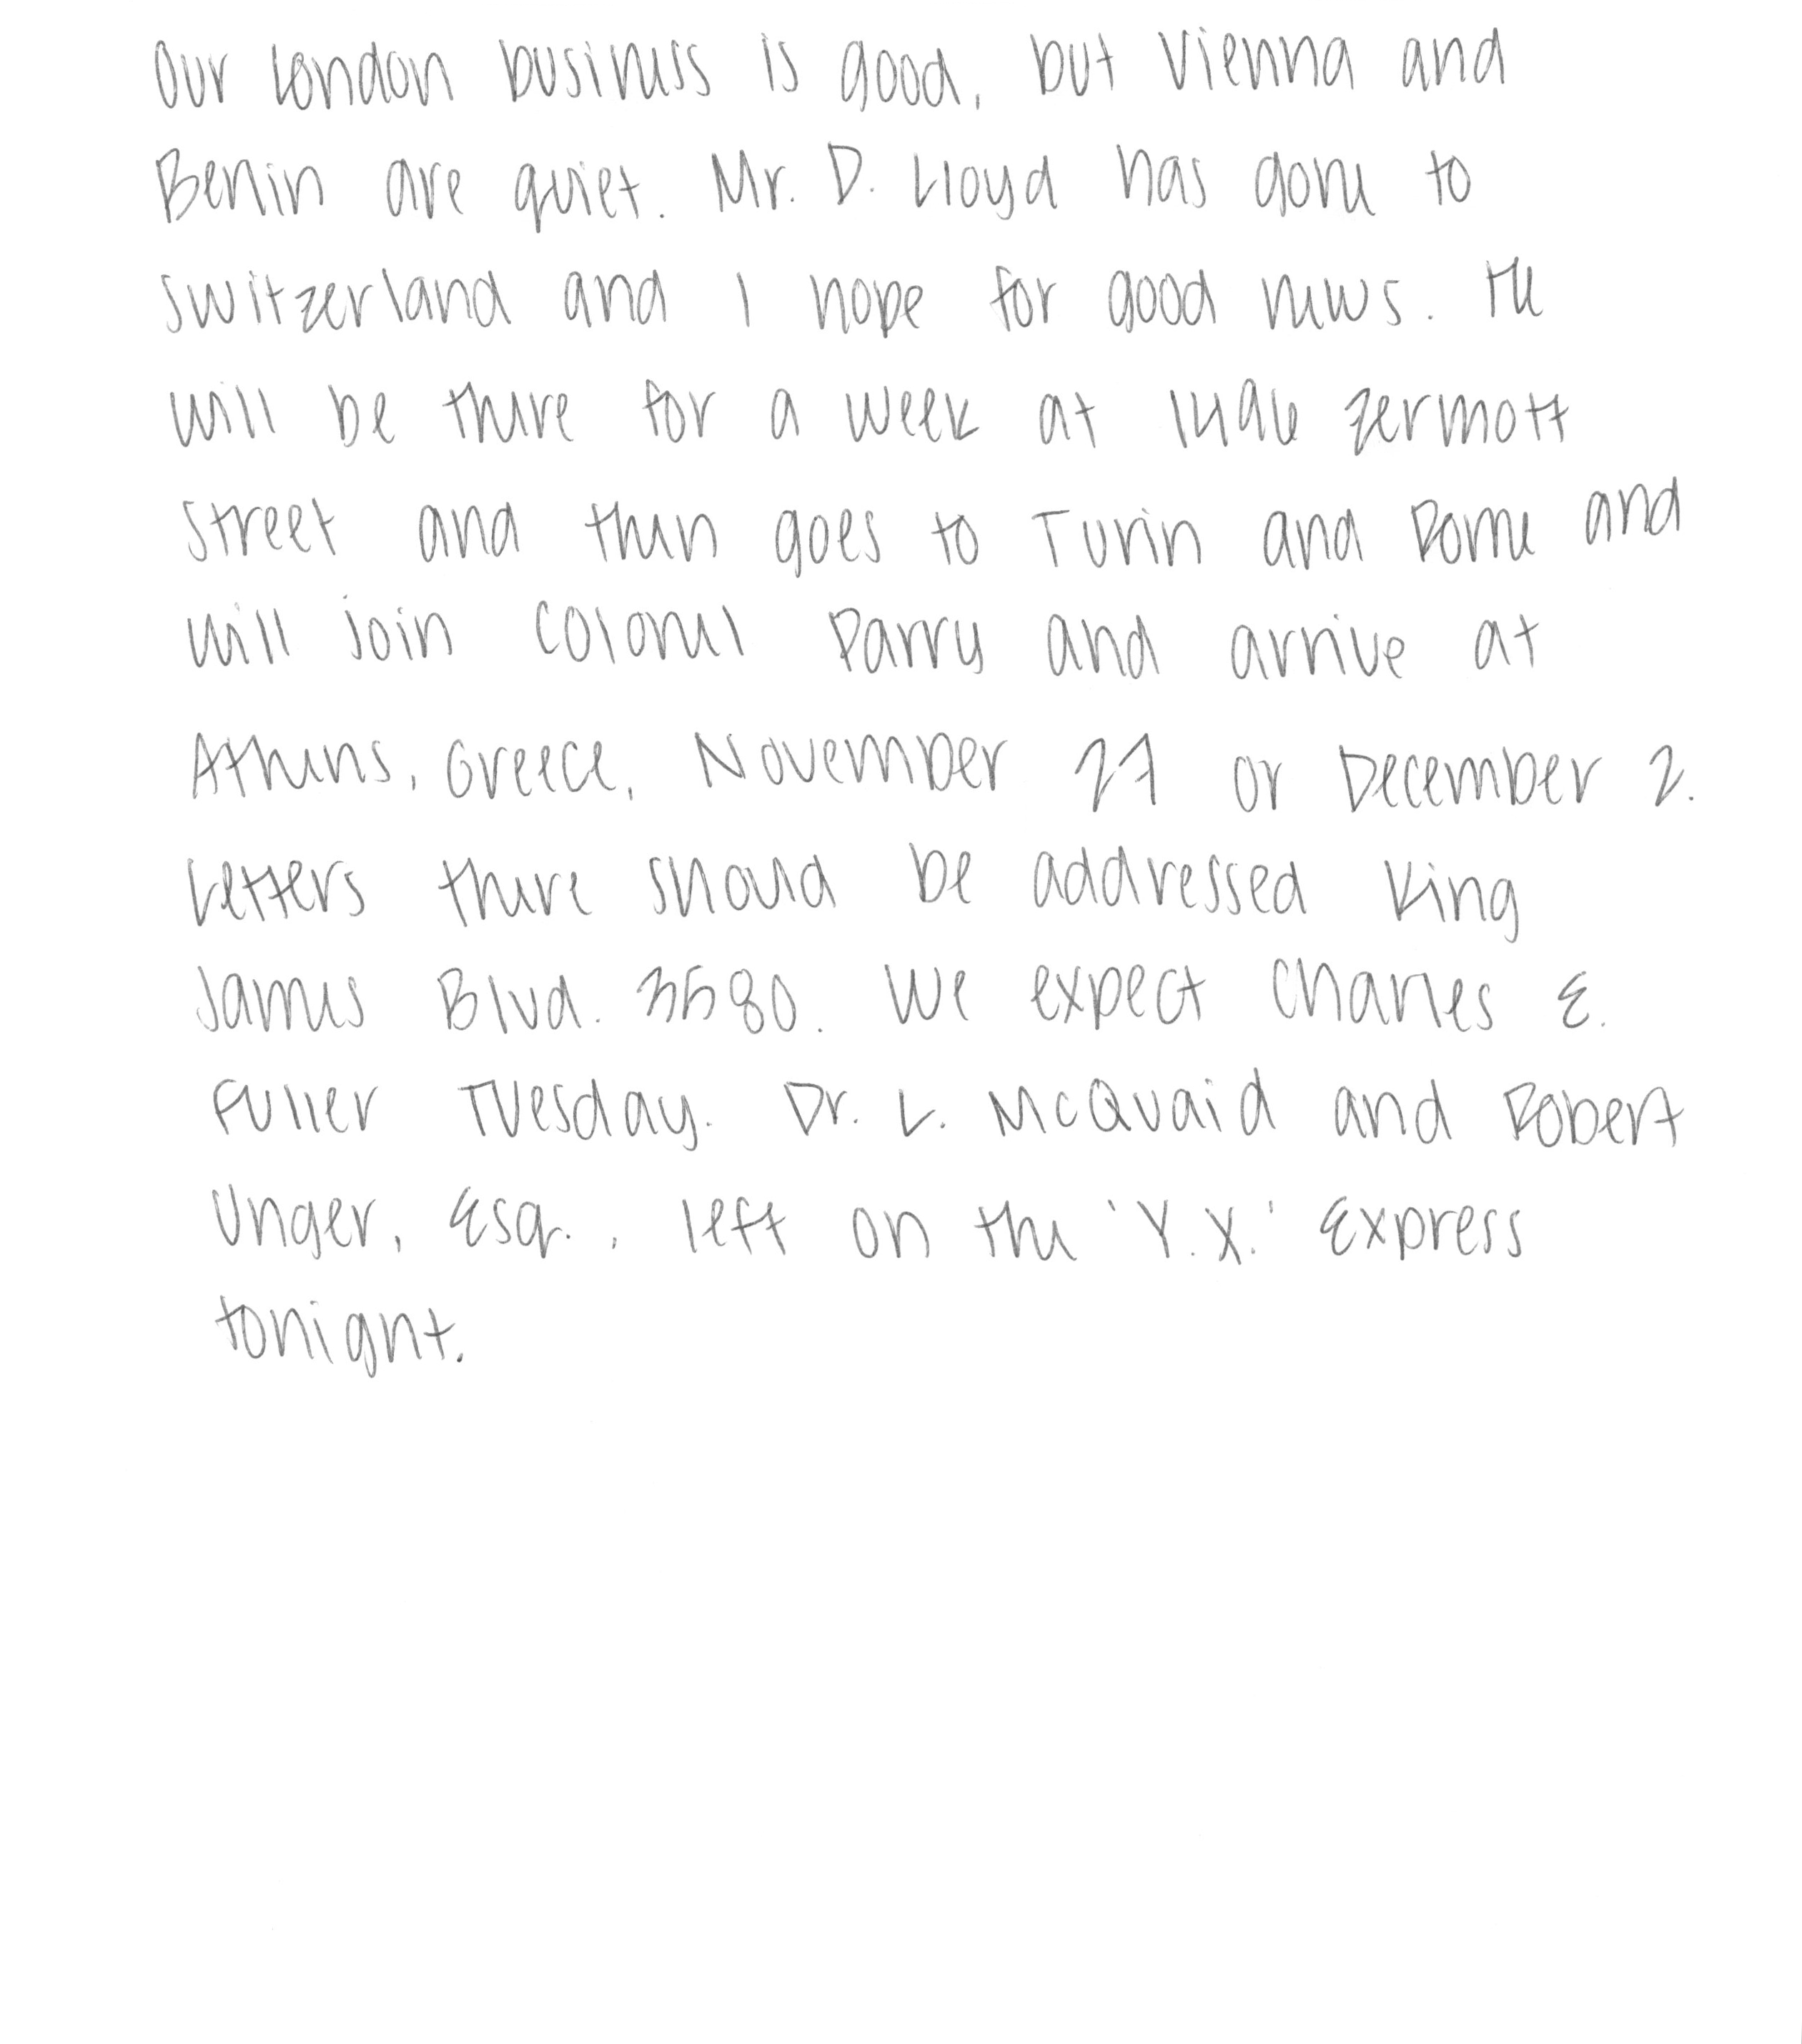 Our London business is good, but Vienna and
Berlin are quiet. Mr. D. Lloyd has gone to
Switzerland and I hope for good news. He
will be there for a week at 1496 Zermott
Street and then goes to Turin and Rome and
will join Colonel Parry and arrive at
Athens, Greece, November 27 or December 2.
Letters there should be addressed King
James Blvd. 3580. We expect Charles E.
Fuller Tuesday. Dr. L. McQuaid and Robert
Unger, Esq., left on the 'Y.X.' Express
tonight.